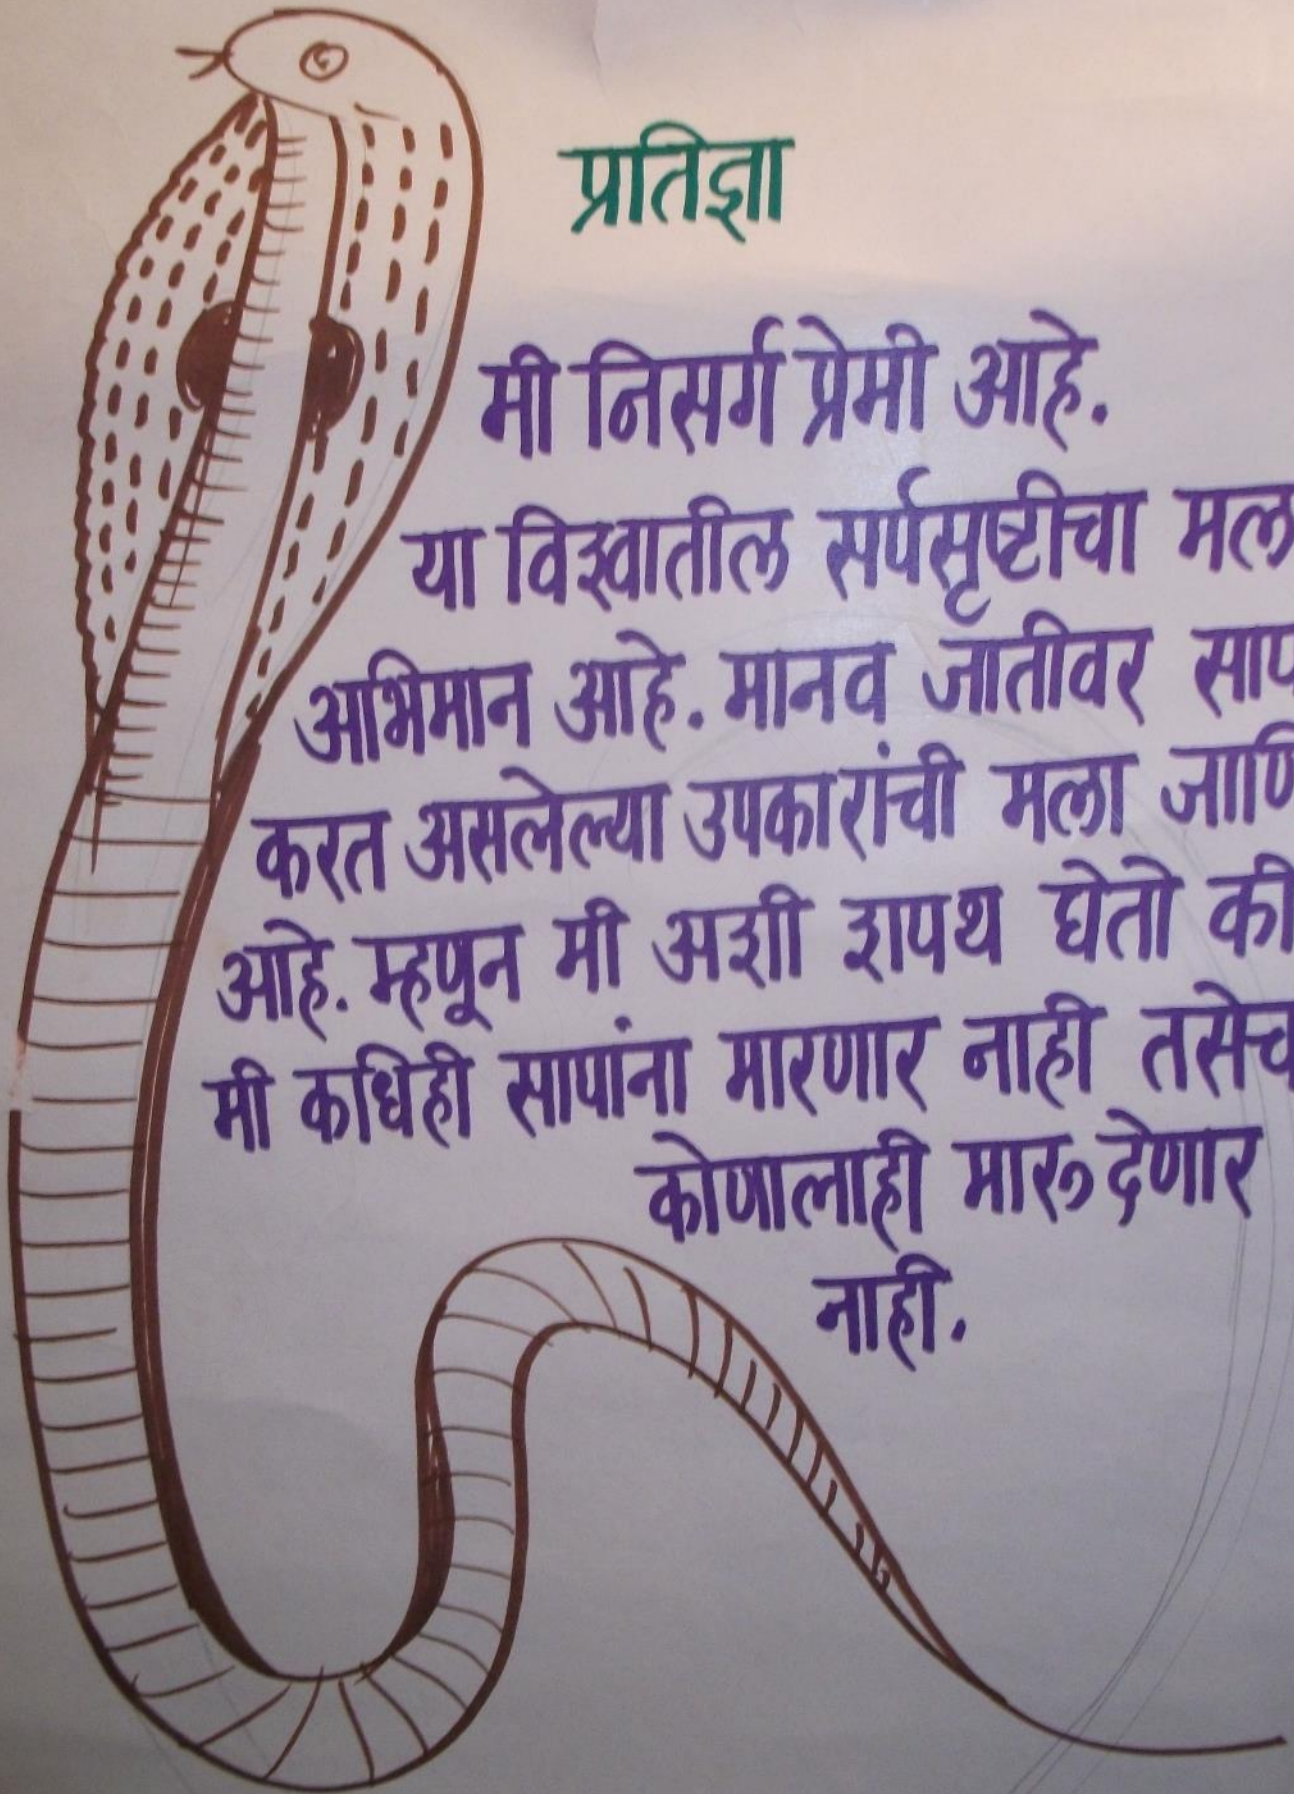 प्रतिज्ञा
मी निसर्ग प्रेमी आहे.
या विश्वातील सर्पसृष्टीचा मल
अभिमान आहे. मानव जातीवर साप
करत असलेल्या उपकारांची मला जाणि
आहे. म्हणून मी अशी शपथ घेतो की
मी कधिही सापांना मारणार नाही तसेच
कोणालाही मारु देणार
नाही.